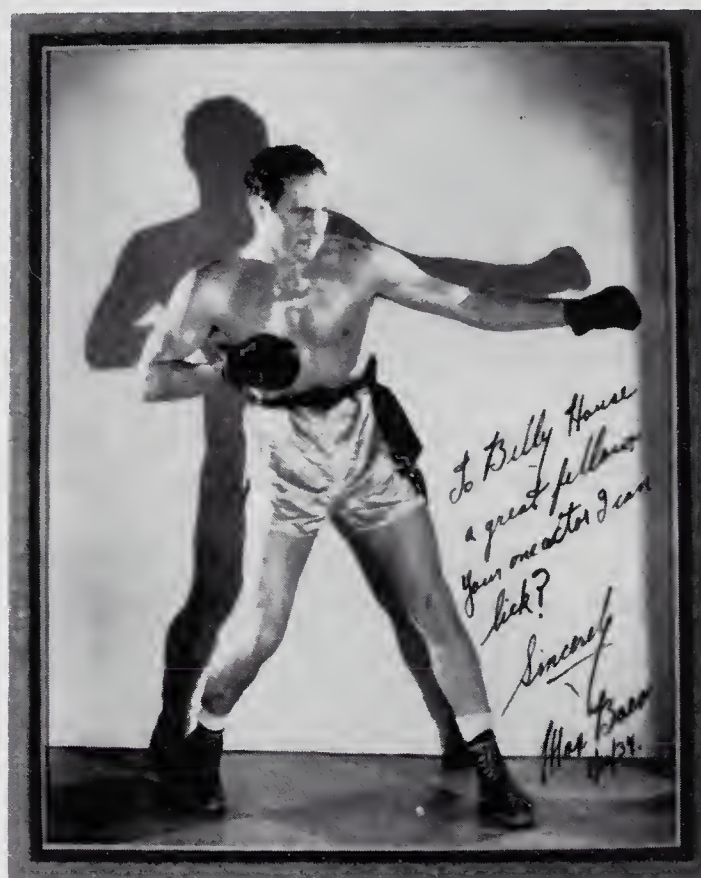 To Billy House
a great fellow
your one actor I can
lick?
Sincerely
Max Baer